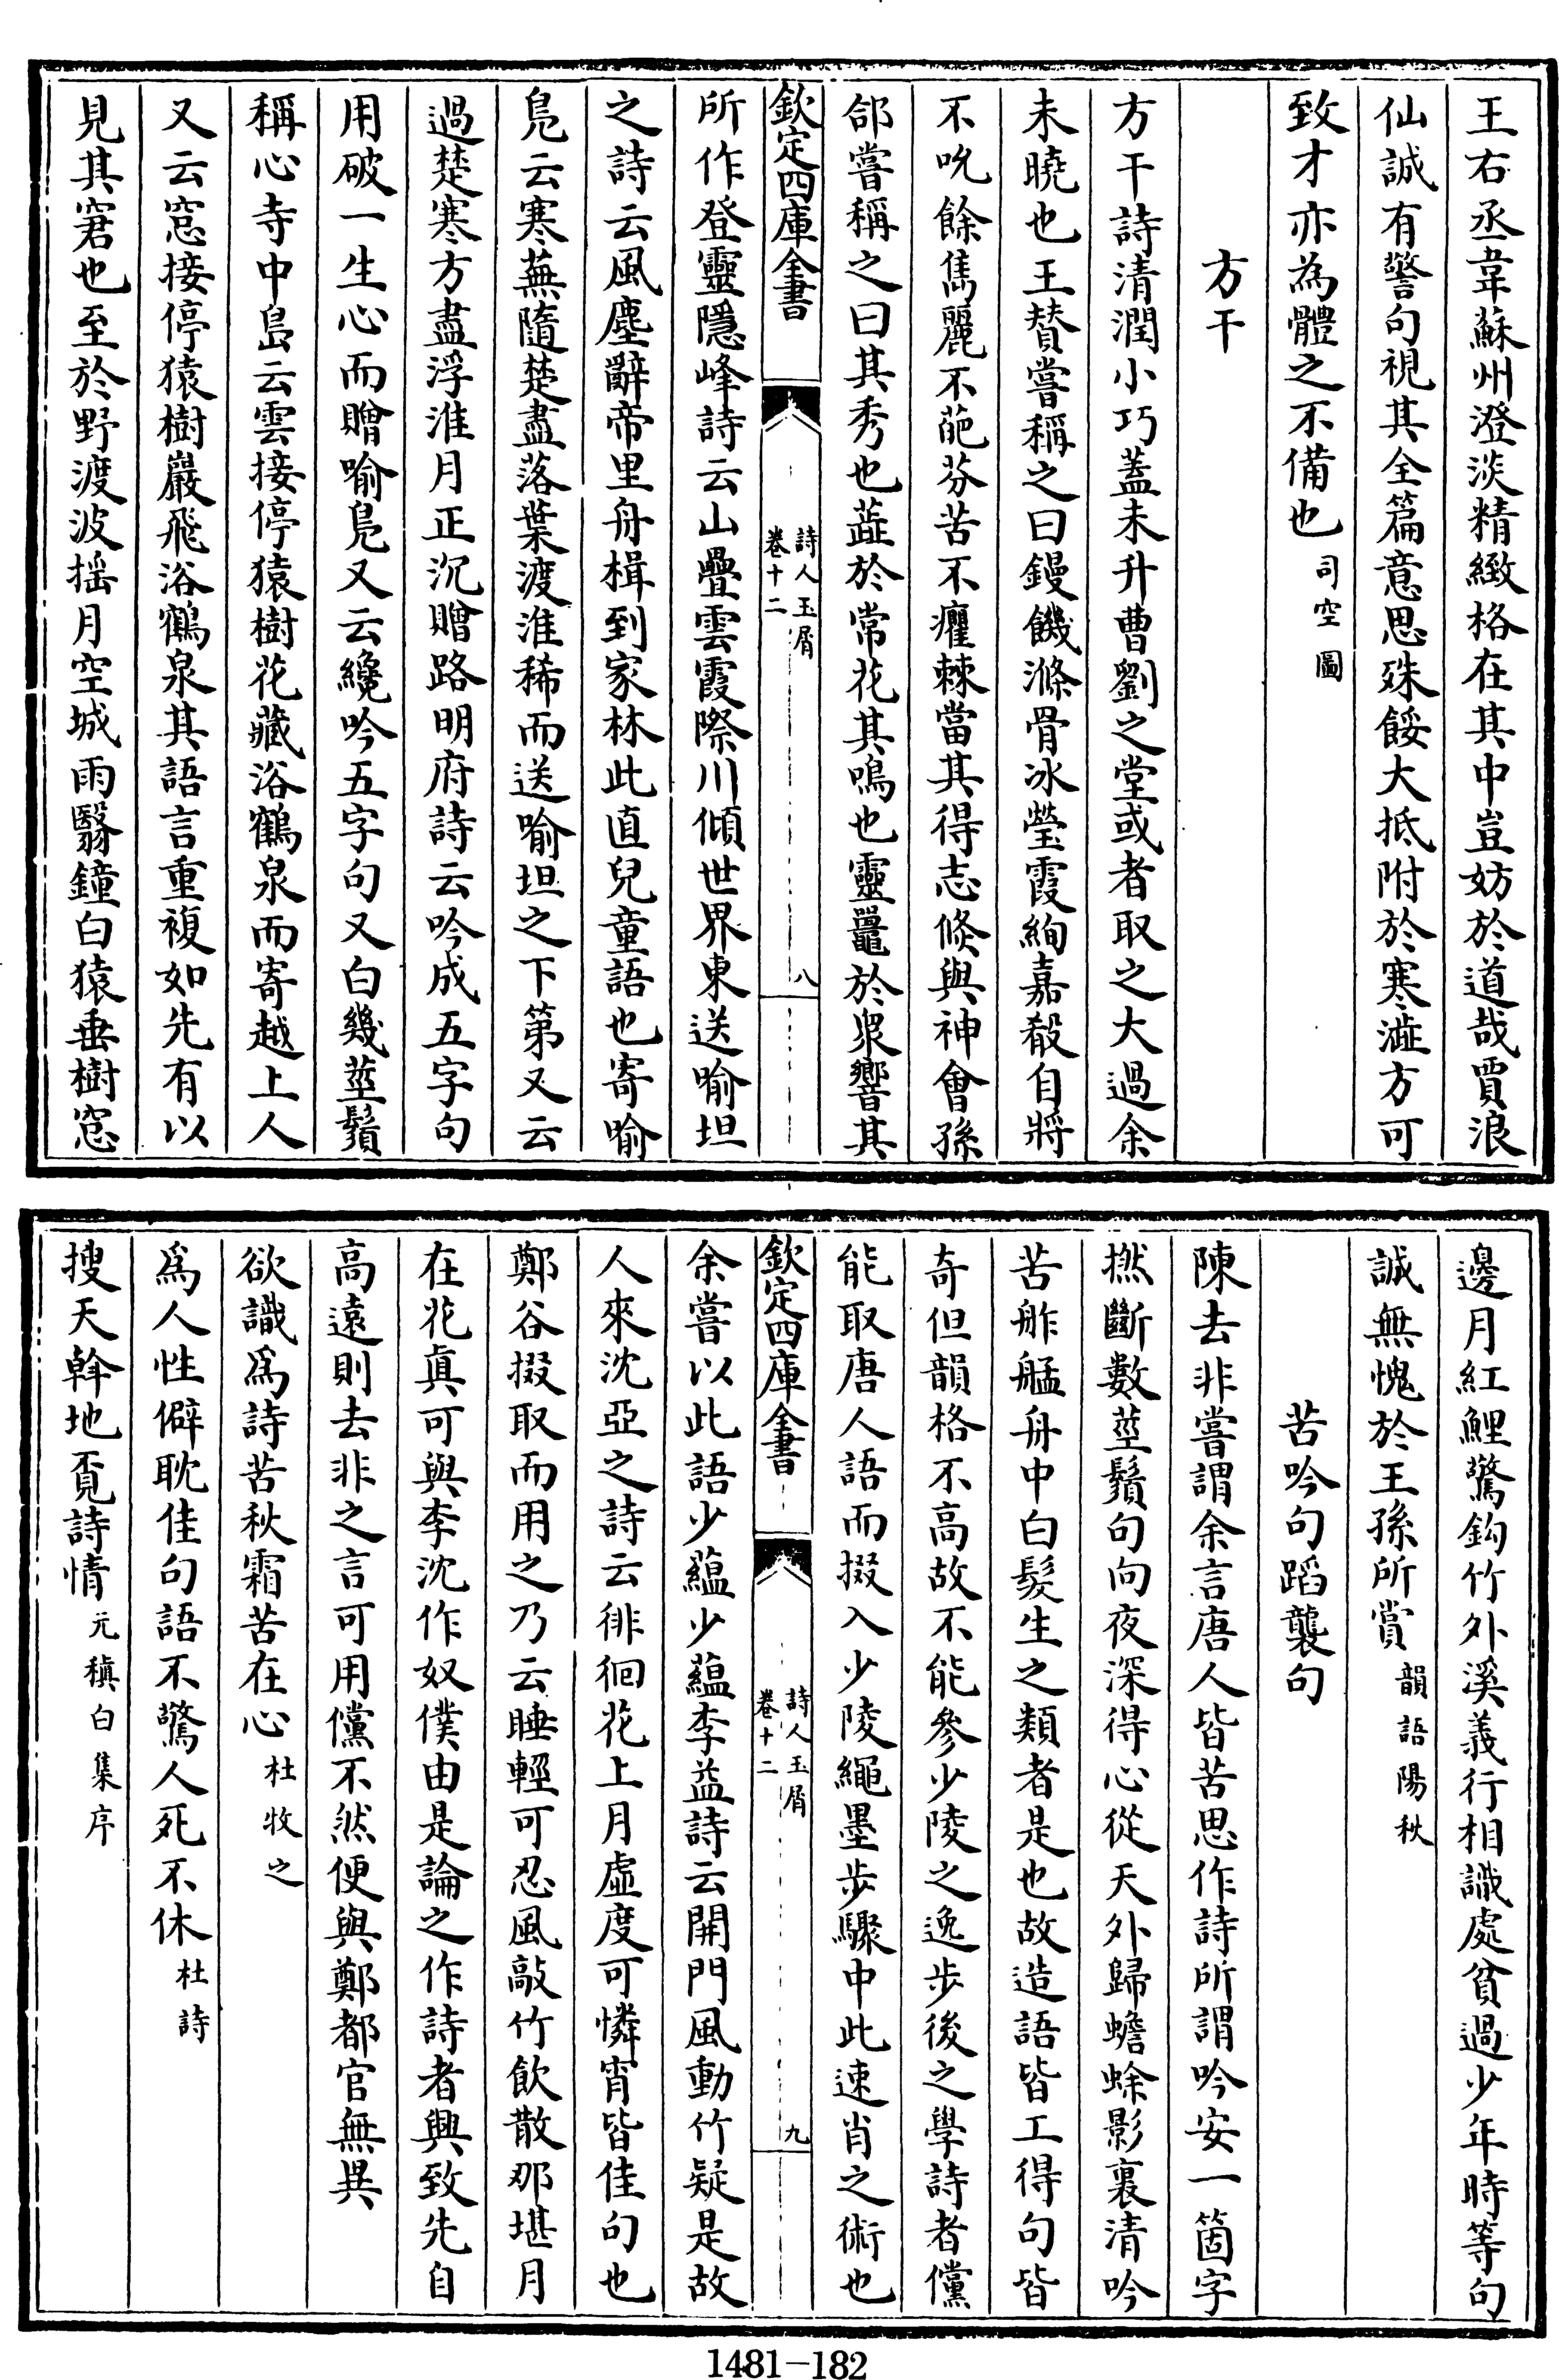 王右丞韋蘇州澄淡精緻格在其中豈妨於道哉賈浪
仙誠有警句視其全篇意思殊餒大抵附於寒澁方可
致才亦為體之不備也司空圖
方干
方干詩清潤小巧蓋未升曹劉之堂或者取之太過余
未曉也王贊嘗稱之曰鏝饑滌骨冰瑩霞絢嘉殽自將
不吮餘雋麗不葩芬苦不癯棘當其得志倐與神會孫
郃嘗稱之曰其秀也蕋於常花其鳴也靈鼉於衆響其
欽定四庫全書
詩人玉屑
卷十二
八
所作登靈隱峰詩云山疊雲霞際川傾世界東送喻坦
之詩云風塵辭帝里舟楫到家林此直兒童語也寄喻
鳬云寒蕪隨楚盡落葉渡淮稀而送喻坦之下第又云
過楚寒方盡浮淮月正沉贈路明府詩云吟成五字句
用破一生心而贈喻鳬又云纔吟五字句又白幾莖鬚
稱心寺中島云雲接停猿樹花藏浴鶴泉而寄越上人
又云窓接停猿樹巖飛浴鶴泉其語言重複如先有以
見其窘也至於野渡波摇月空城雨翳鐘白猿垂樹窓
邊月紅鯉驚鈎竹外溪義行相識處貧過少年時等句
誠無愧於王孫所賞韻語陽秋
苦吟句蹈襲句
陳去非嘗謂余言唐人皆苦思作詩所謂吟安一箇字
撚斷數莖鬚句向夜深得心從天外歸蟾蜍影裏清吟
苦舴艋舟中白髮生之類者是也故造語皆工得句皆
奇但韻格不高故不能參少陵之逸步後之學詩者儻
能取唐人語而掇入少陵繩墨步驟中此速肖之術也
欽定四庫全書
詩人玉屑
卷十二
九
余嘗以此語少蘊少蘊李益詩云開門風動竹疑是故
人來沈亞之詩云徘徊花上月虛度可憐宵皆佳句也
鄭谷掇取而用之乃云睡輕可忍風敲竹飲散那堪月
在花真可與李沈作奴僕由是論之作詩者興致先自
高遠則去非之言可用儻不然便與鄭都官無異
欲識爲詩苦秋霜苦在心杜牧之
爲人性僻耽佳句語不驚人死不休杜詩
搜天斡地覔詩情元稹白集序
1481-182